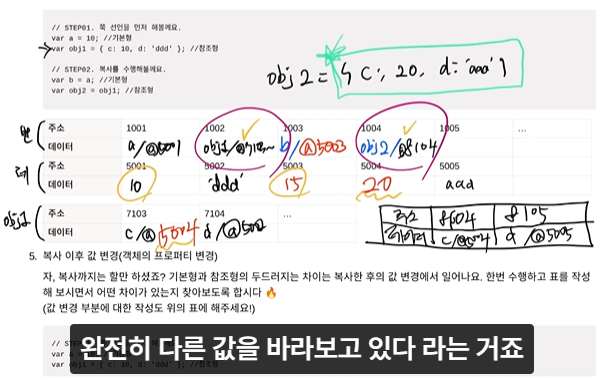 // STEP01. 쭉 선언을 먼저 해볼게요.
var a = 10; //기본형
var obj1 = { c: 10, d: 'ddd' }; //참조형
// STEP02. 복사를 수행해볼게요.
var b = a; //기본형
var obj2 = obj1; //참조형
obj2 = { c: 20, d: 'aaa' }
변 주소 1001 1002 1003 1004 1005 ...
데이터 a/@5001 obj1/@ b/@5003 obj2/@8104
데 주소 5001 5002 5003 5004 5005
데이터 10 'ddd' 15 20 aaa
obj1 주소 7103 7104 ...
데이터 c/@5004 d/@5002
주소 8604 8105
데이터 c/@5004 d/@5005
5. 복사 이후 값 변경(객체의 프로퍼티 변경)
자, 복사까지는 할만 하셨죠? 기본형과 참조형의 두드러지는 차이는 복사한 후의 값 변경에서 일어나요. 한번 수행하고 표를 작성
해 보시면서 어떤 차이가 있는지 찾아보도록 합시다 🔥
(값 변경 부분에 대한 작성도 위의 표에 해주세요!)
완전히 다른 값을 바라보고 있다 라는 거죠